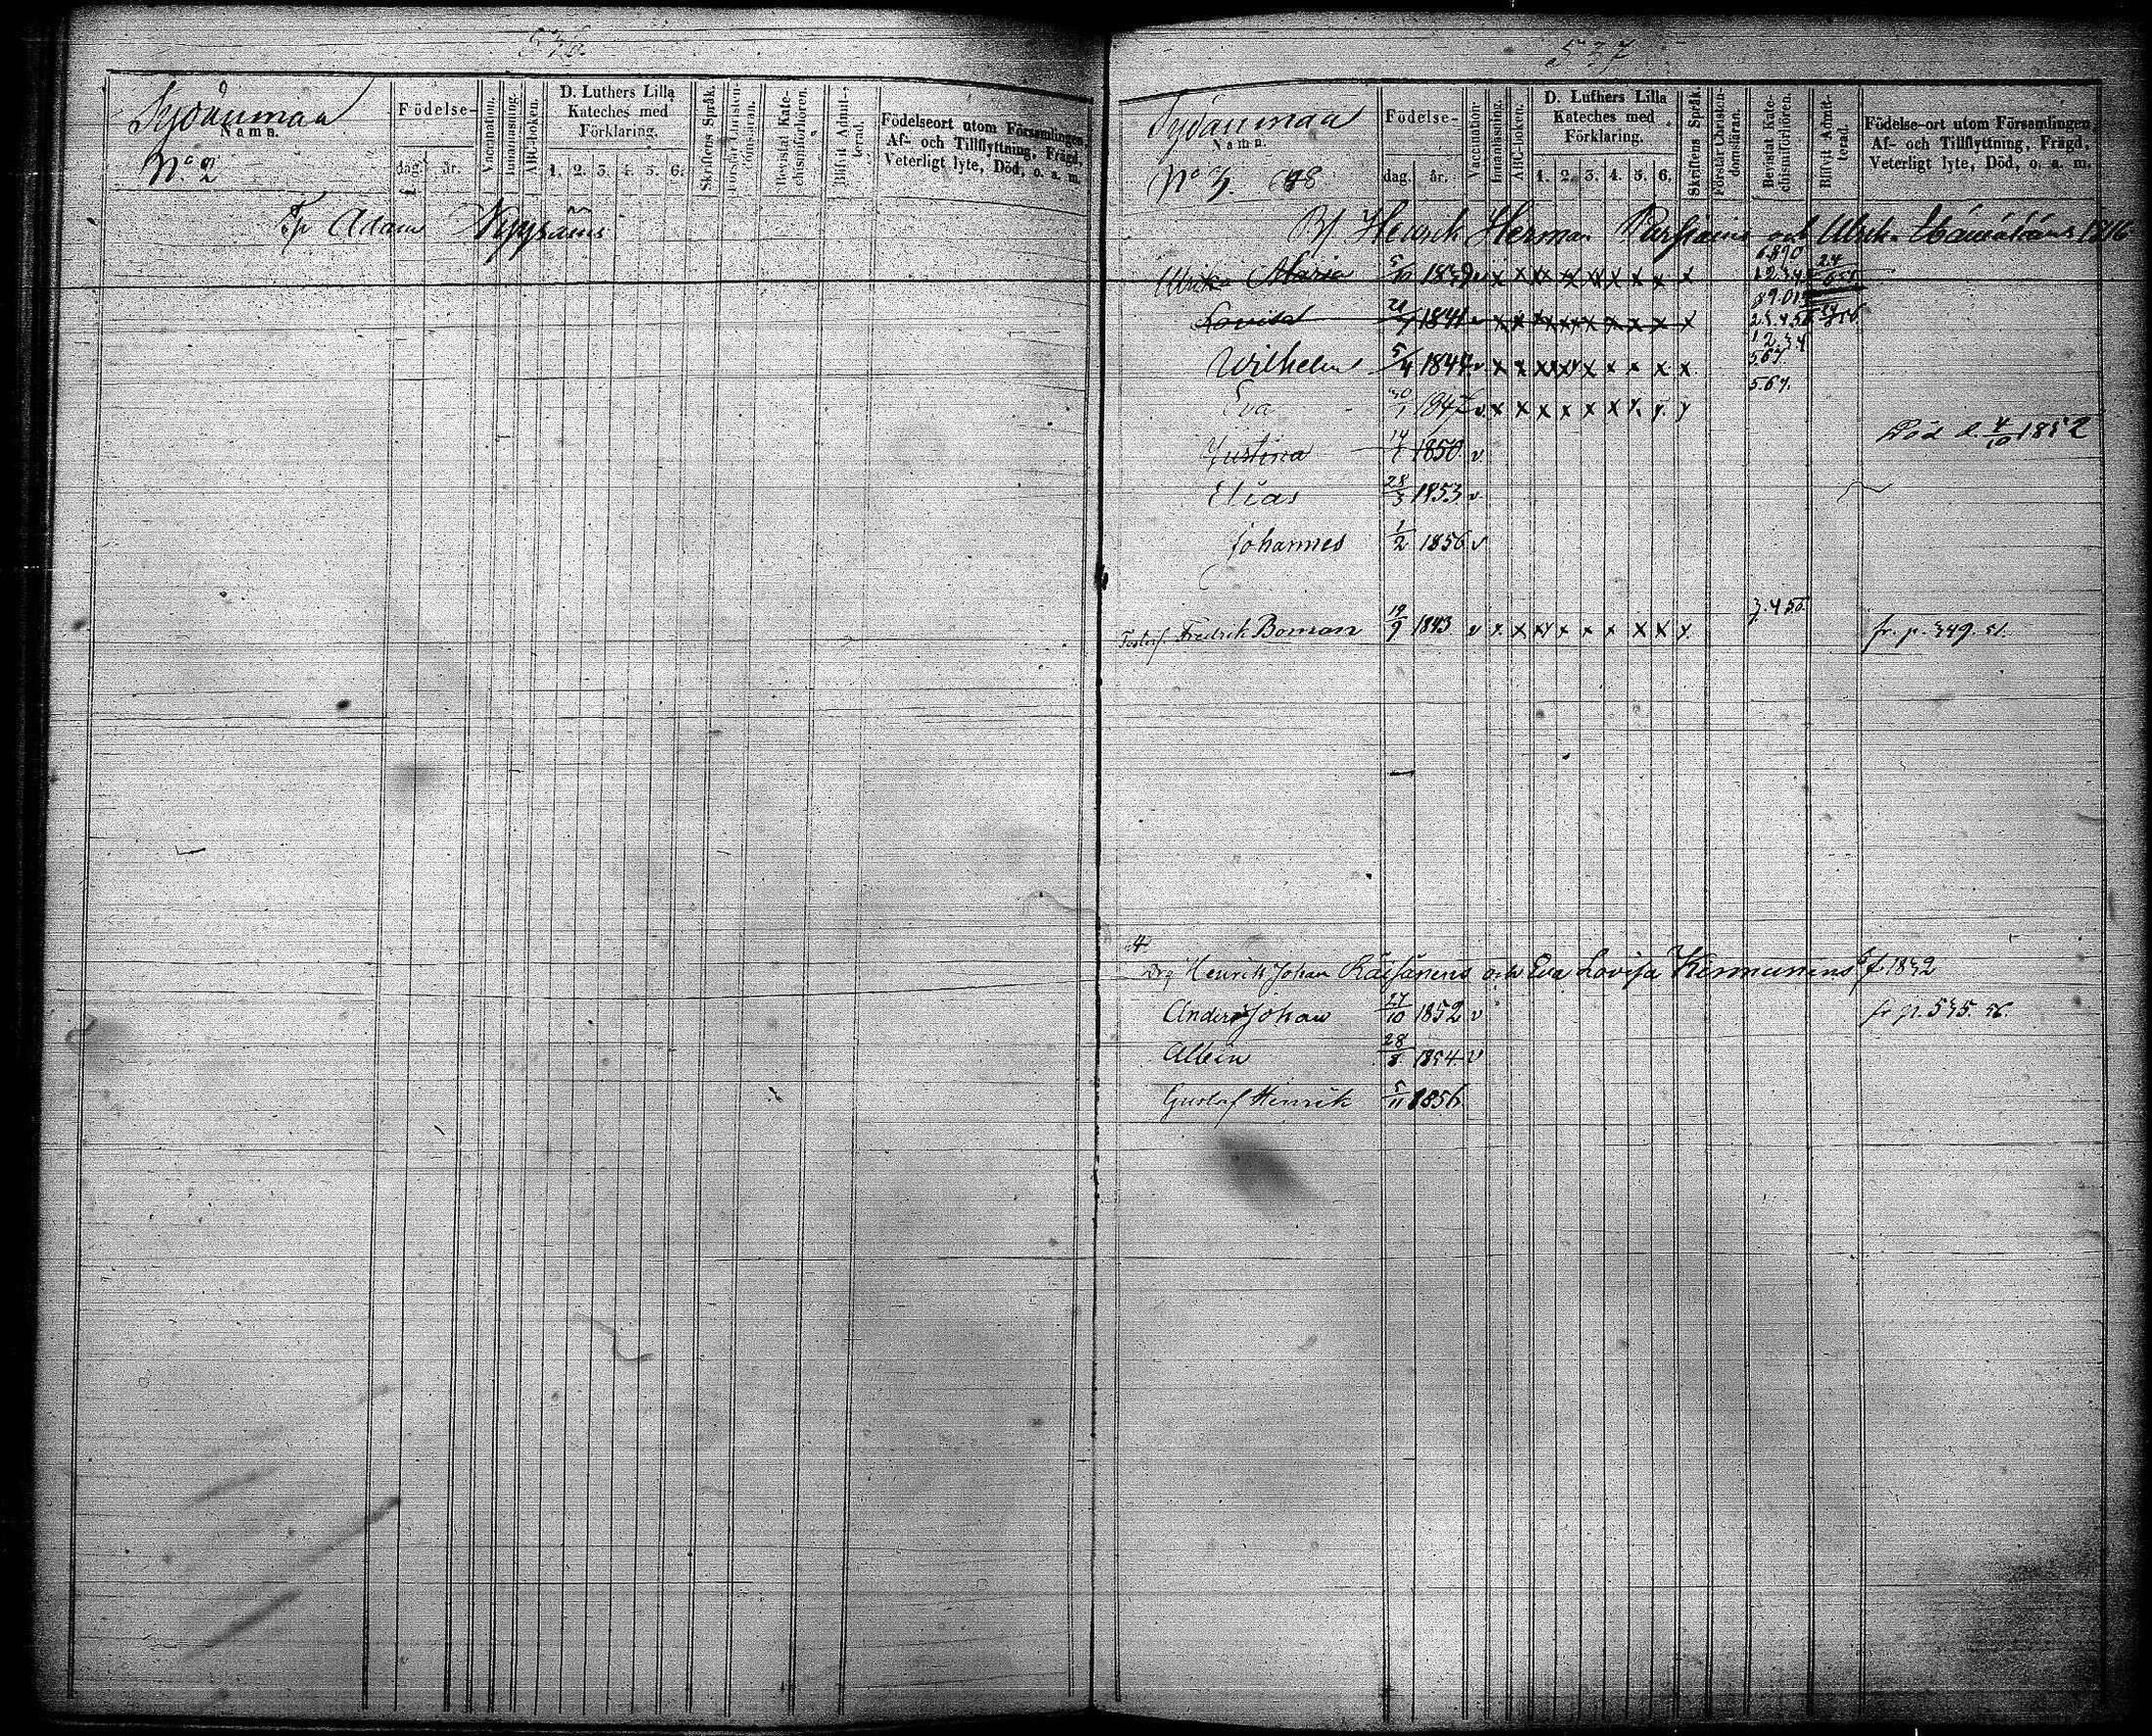 536.
Sydänmaa
Namn.
No 2
Födelse-
dag. år.
Vaccination.
Innanläsning.
ABC-boken.
D. Luthers Lilla
Kateches med
Förklaring.
1. 2. 3. 4. 5. 6.
Skriftens Språk.
Förstår Christen-
domsläran.
Bevistat Kate-
chismiförhören.
Blifvit Admit-
terad.
Födelseort utom Församlingen,
Af- och Tillflyttning, Frägd,
Veterligt lyte, Död, o. a. m.
Tp Adam
537
Sydänmaa
Namn.
No 3.
Födelse-
dag. år.
Vaccination
Innanläsning.
ABC-boken.
D. Luthers Lilla
Kateches med
Förklaring.
1. 2. 3. 4. 5. 6.
Skriftens Språk.
Förstår Christen-
domsläran.
Bevistat Kate-
chismiförhören.
Blifvit Admit-
terad.
Födelse-ort utom Församlingen,
Af- och Tillflyttning, Frägd,
Veterligt lyte, Död, o. a. m.
Henrik Herman och Ulrika 1816
Ulrika Maria 5/10 1839 v x x xx xx xx x x x x
Lovisa 1841 v x x x x x x x x x
Wilhelm 5/4 1844 v x x x x x x x x x
567
567.
Eva 30/1 1847 v x x x x x x x x x
Justina 1850 v Död d. 4/10 1852
Elias 28/3 1853 v
Johannes 1/2 1856 v
Fredrik Boman 19/9 1843 v x x x x x x x x x 3.456 fr. p. 349. 51.
4
Henrik Johan Räisänens och Eva Lovisa Kinnunens f. 1832
Anders Johan 27/10 1852 v fr p. 535. 56.
Albin 28/8 1854 v
Gustaf Hinrik 5/11 1856